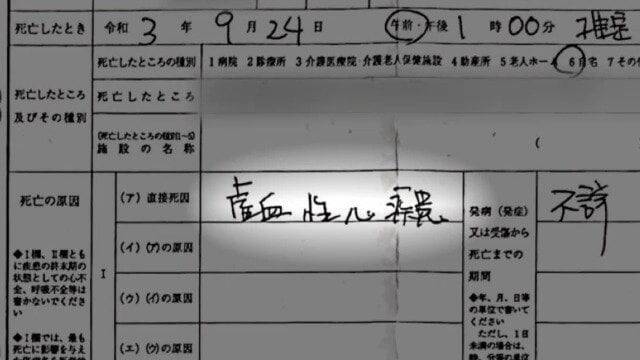 死亡したとき 令和 3 年 9 月 24 日 午前・午後 1 時 00 分 推定
死亡したところの種別 1 病院 2 診療所 3 介護医療院・介護老人保健施設 4 助産所 5 老人ホーム 6 自宅 7 その
死亡したところ及びその種別
死亡したところ
(死亡したところの種別1~5)
施設の名称
(
死亡の原因
◆Ⅰ欄、Ⅱ欄ともに疾患の終末期の状態としての心不全、呼吸不全等は書かないでください
◆Ⅰ欄では、最も死亡に影響を与え
Ⅰ
(ア) 直接死因 虚血性心疾患
(イ) (ア)の原因
(ウ) (イ)の原因
(エ) (ウ)の原因
発病(発症)又は受傷から死亡までの期間
不詳
◆年、月、日等の単位で書いてください
ただし、1日未満の場合は、